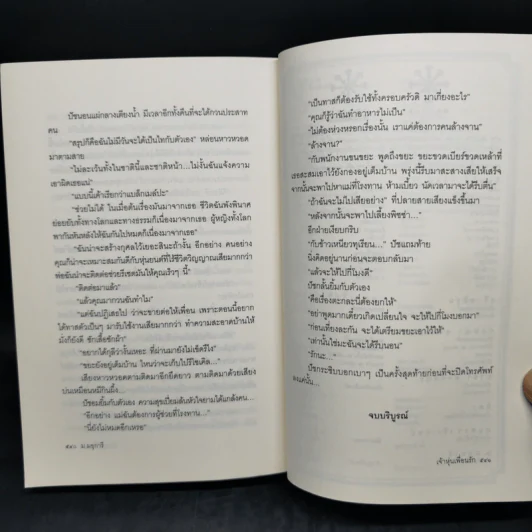 บัซนอนแผ่กลางเตียงน้ำ มีเวลาอีกทั้งคืนที่จะได้กวนประสาท
คน
"สรุปก็คือฉันไม่มีวันจะได้เป็นไทกับตัวเอง" หล่อนหาวหวอด
มาตามสาย
"ไม่ละเว้นทั้งในชาตินี้และชาติหน้า...ไม่งั้นฉันแจ้งความ
เอาผิดเธอแน่"
"แบบนี้เค้าเรียกว่าแบล็กเมล์ปะ"
"ช่วยไม่ได้ ในเมื่อต้นเรื่องมันมาจากเธอ ชีวิตฉันพังพินาศ
ย่อยยับทั้งทางโลกและทางธรรมก็เนื่องมาจากเธอ ผู้หญิงทั้งโลก
พากันหันหลังให้ฉันไปหมดก็เนื่องมาจากเธอ"
"ฉันน่าจะสร้างกุศลไว้เยอะสินะถ้างั้น อีกอย่าง คนอย่าง
คุณก็น่าจะเหมาะสมกันดีกับหุ่นยนต์ที่ไร้ชีวิตวิญญาณเสียมากกว่า
พ่อฉันน่าจะคิดต่อช่วยรีเซตมันให้คุณเร็วๆ นี้"
"ติดต่อมาแล้ว"
"แล้วคุณมากวนฉันทำไม"
"แต่ฉันปฏิเสธไป ว่าจะขายต่อให้เพื่อน เพราะตอนนี้อยาก
ได้ทาสตัวเป็นๆ มารับใช้งานเสียมากกว่า ทำความสะอาดบ้านให้
มั่งก็ยังดี ซักเสื้อซักผ้า"
"อยากได้กุลีว่างั้นเหอะ ที่ผ่านมายังไม่เข็ดรึไง"
"ขยะยังอยู่เต็มบ้าน ไหนว่าจะเก็บไปรีไซเคิล..."
เสียงหาวหวอดตามติดมาอีกยืดยาว ตามติดมาด้วยเสียง
บ่นเหมือนหมีกินผึ้ง...
บัซอมยิ้มกับตัวเอง ความสุขเปี่ยมล้นหัวใจยามได้แกล้งคน...
"อีกอย่าง แม่ฉันต้องการผู้ช่วยที่โรงทาน..."
"นี่ยังไม่หมดอีกเหรอ"
ม.มธุการี
"เป็นทาสก็ต้องรับใช้ทั้งครอบครัวดิ มาเกี่ยงอะไร"
"คุณก็รู้ว่าฉันทำอาหารไม่เป็น"
"ไม่ต้องห่วงหรอกเรื่องนั้น เราแค่ต้องการคนล้างจาน"
"ล้างจาน?"
"กับพนักงานขนขยะ พูดถึงขยะ ขยะขวดเบียร์ขวดเหล้าที่
เธอสะสมเอาไว้ยังกองอยู่เต็มบ้าน พรุ่งนี้รีบมาสะสางเสียให้เสร็จ
จากนั้นจะพาไปหาแม่ที่โรงทาน ห้ามเบี้ยว นัดเวลามาจะได้รีบตื่น"
"ถ้าฉันจะไม่ไปเสียอย่าง" ที่ปลายสายเสียงแข็งขึ้นมา
"หลังจากนั้นจะพาไปเลี้ยงพิซซ่า..."
อีกฝ่ายเงียบกริบ
"กับข้าวเหนียวทุเรียน..." บัซแถมท้าย
นิ่งคิดอยู่นานก่อนจะตอบกลับมา
"แล้วจะให้ไปกี่โมงดี"
บัซกลั้นยิ้มกับตัวเอง
"คือเรื่องตะกละนี่ต้องยกให้"
"อย่าพูดมากเดี๋ยวเกิดเปลี่ยนใจ จะให้ไปกี่โมงบอกมา"
"ก่อนเที่ยงละกัน จะได้เตรียมขยะเอาไว้ให้"
"เท่านั้นใช่มะฉันจะได้รีบนอน"
"รักนะ..."
บัซกระซิบบอกเบาๆ เป็นครั้งสุดท้ายก่อนที่จะปิดโทรศัพท์
ลงแค่นั้น...
จบบริบูรณ์
เจ้าหุ่นเพื่อนรัก